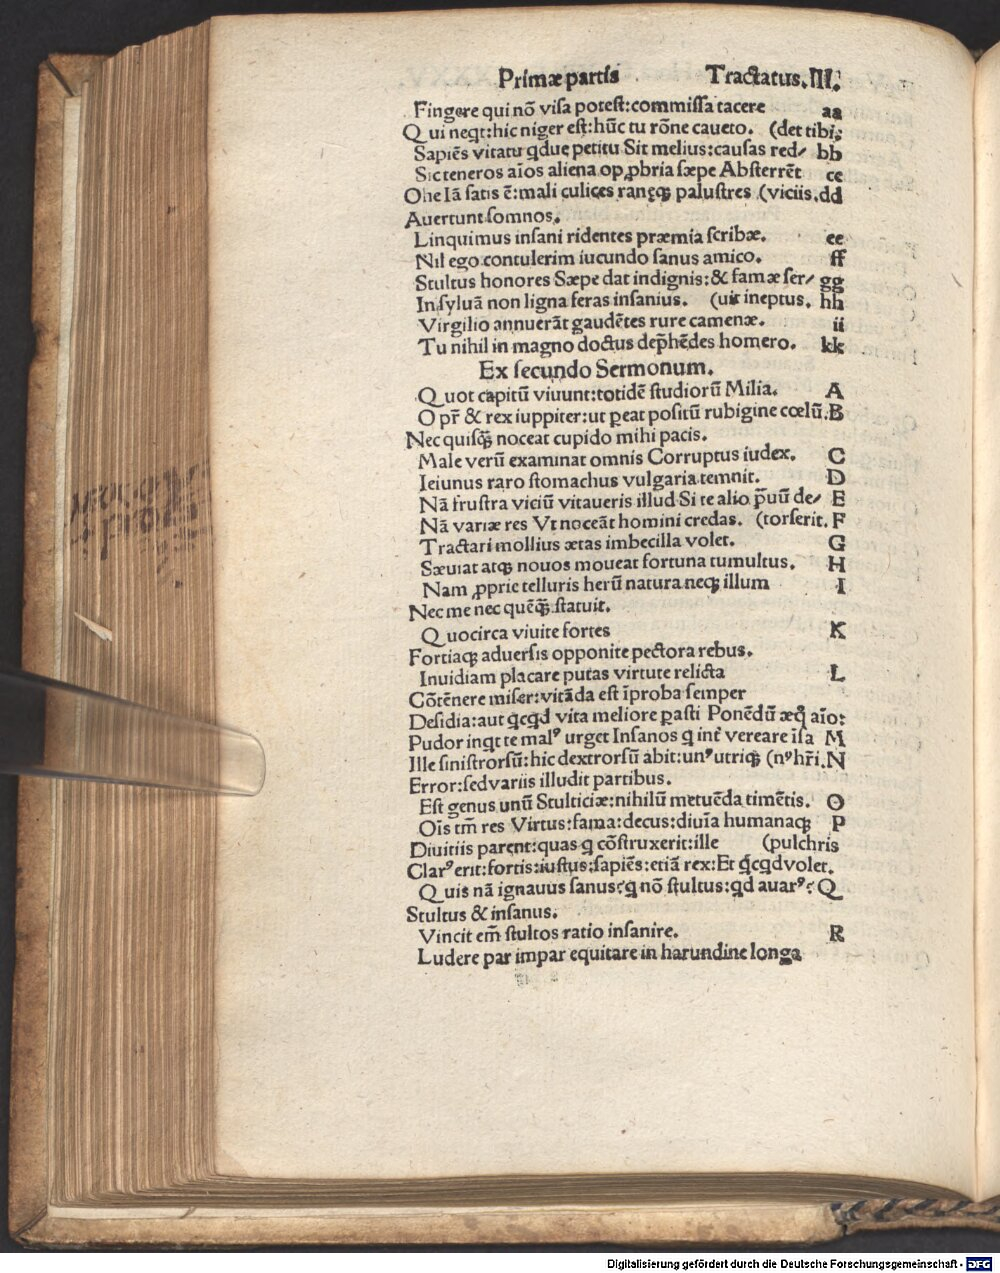 Primæ partis Tractatus.III.
Fingere qui nõ visa potest:commissa tacere aa
Qui neqt:hic niger est:hũc tu rõne caueto. (det tibi;
Sapiẽs vitatu qdue petitu Sit melius:causas red/ bb
Sic teneros aĩos aliena opꝓbria sæpe Absterrẽt cc
Ohe Iã satis ẽ:mali culices ranęqꝫ palustres (viciis.dd
Auertunt somnos.
Linquimus insani ridentes præmia scribæ. ee
Nil ego contulerim iucundo sanus amico. ff
Stultus honores Sæpe dat indignis:& famæ ser/ gg
In syluã non ligna feras insanius. (uit ineptus. hh
Virgilio annuerãt gaudẽtes rure camenæ. ii
Tu nihil in magno doctus dep̃hẽdes homero. kk
Ex secundo Sermonum.
Quot capitũ viuunt:totidẽ studiorũ Milia. A
O pr̃ & rex iuppiter:ut ꝑeat positũ rubigine cœlũ.B
Nec quisq̃ꝫ noceat cupido mihi pacis.
Male verũ examinat omnis Corruptus iudex. C
Ieiunus raro stomachus vulgaria temnit. D
Nã frustra viciũ vitaueris illud Si te alio p̃uũ de/ E
Nã variæ res Vt noceãt homini credas. (torserit. F
Tractari mollius ætas imbecilla volet. G
Sæuiat atqꝫ nouos moueat fortuna tumultus. H
Nam ꝓprie telluris herũ natura neqꝫ illum I
Nec me nec quẽq̃ꝫ statuit.
Quocirca viuite fortes K
Fortiaqꝫ aduersis opponite pectora rebus.
Inuidiam placare putas virtute relicta L
Cõtẽnere miser:vitãda est ĩproba semper
Desidia:aut qcqd vita meliore ꝑasti Ponẽdũ æq̃ aĩo:
Pudor inqt te malꝰ urget Insanos q int̃ vereare ĩsa M
Ille sinistrorsũ:hic dextrorsũ abit:unꝰ utriqꝫ (nꝰ hr̃i.N
Error:sed variis illudit partibus.
Est genus unũ Stulticiæ:nihilũ metuẽda timẽtis. O
Oĩs tm̃ res Virtus:fama:decus:diuĩa humanaqꝫ P
Diuitiis parent:quas q cõstruxerit:ille (pulchris
Clarꝰ erit:fortis:iustus:sapiẽs:etiã rex:Et q̃cqd volet.
Quis nã ignauus sanus?q nõ stultus:qd auarꝰ? Q
Stultus & insanus.
Vincit em̃ stultos ratio insanire. R
Ludere par impar equitare in harundine longa
Digitalisierung gefördert durch die Deutsche Forschungsgemeinschaft - DFG